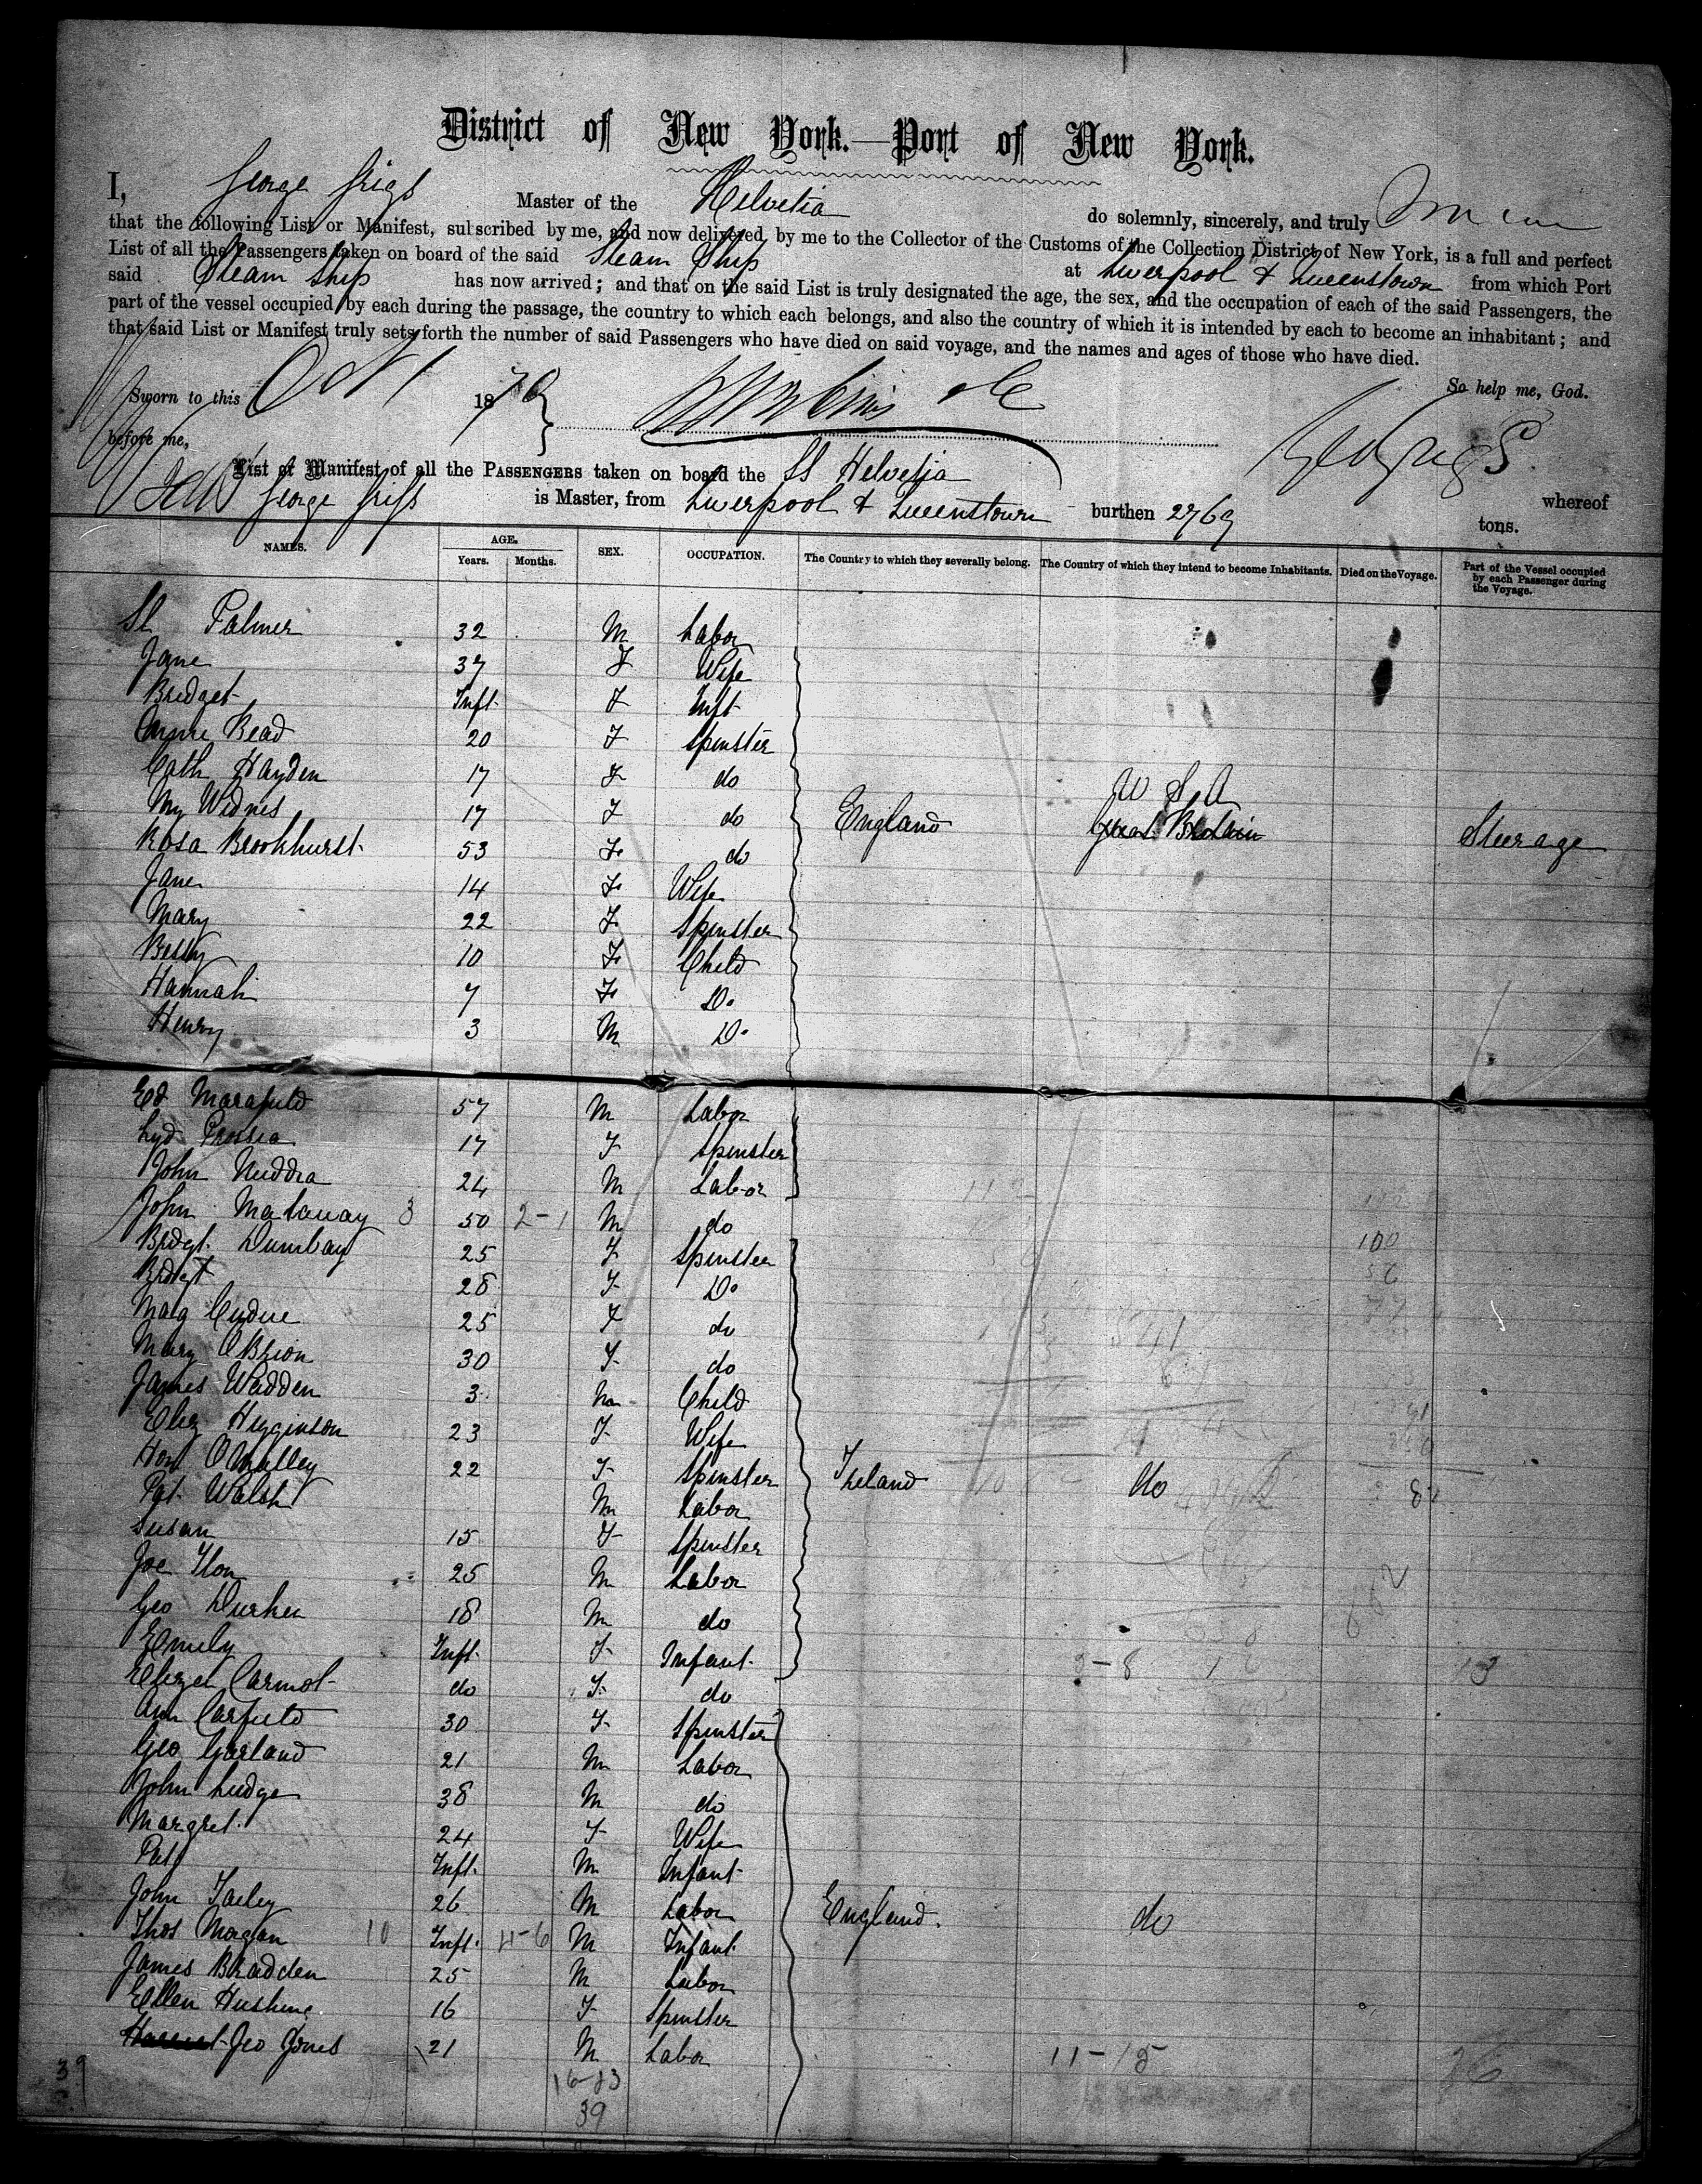 District of New York.—Port of New York.
I, George Grigs Master of the Helvetia do solemnly, sincerely, and truly
that the following List or Manifest, subscribed by me, and now delivered by me to the Collector of the Customs of the Collection District of New York, is a full and perfect
List of all the Passengers taken on board of the said Steam Ship at Liverpool & Queenstown from which Port
said Steam Ship has now arrived; and that on the said List is truly designated the age, the sex, and the occupation of each of the said Passengers, the
part of the vessel occupied by each during the passage, the country to which each belongs, and also the country of which it is intended by each to become an inhabitant; and
that said List or Manifest truly sets forth the number of said Passengers who have died on said voyage, and the names and ages of those who have died.
So help me, God.
Sworn to this Oct 1 1870
before me,
List or Manifest of all the PASSENGERS taken on board the SS Helvetia whereof
George Grigs is Master, from Liverpool & Queenstown burthen 2769 tons.
NAMES. AGE. Years. Months. SEX. OCCUPATION. The Country to which they severally belong. The Country of which they intend to become Inhabitants. Died on the Voyage. Part of the Vessel occupied by each Passenger during the Voyage.
Sl Palmer 32 M Labor
Jane 37 F Wife
Bridget Inft F Inft
Annie Read 20 F Spinster
Cath Hayden 17 F do U S A
My Widnes 17 F do England Great Britain Steerage
Rosa Brookhurst 53 F do
Jane 14 F Wife
Mary 22 F Spinster
Betsy 10 F Child
Hannah 7 F Do
Henry 3 M Do
Ed Marafield 57 M Labor
Lyd Prossia 17 F Spinster
John Nuddra 24 M Labor
John Matauay 3 50 2-1 M do
Bridgt Dunbay 25 F Spinster 100
Bridgt 28 F Do
Marg Cudue 25 F do
Mary OBrion 30 F do
James Wadden 3 M Child
Eliz Higginson 23 F Wife
Hon OMalley 22 F Spinster Ireland do
Pat Walsh M Labor
Susan 15 F Spinster
Joe Ilon 25 M Labor
Geo Durken 18 M do
Emily Inft F Infant
Elizei Carmot do F do
Ann Carfield 30 F Spinster
Geo Garland 21 M Labor
John Ludge 38 M do
Margret 24 F Wife
Pat Inft M Infant
John Tailey 26 M Labor England. do
Thos Morgan 10 Inft 4-6 M Infant
James Bradden 25 M Labor
Ellen Hushing 16 F Spinster
Geo Jones 21 M Labor 11-15
39 16-23
39